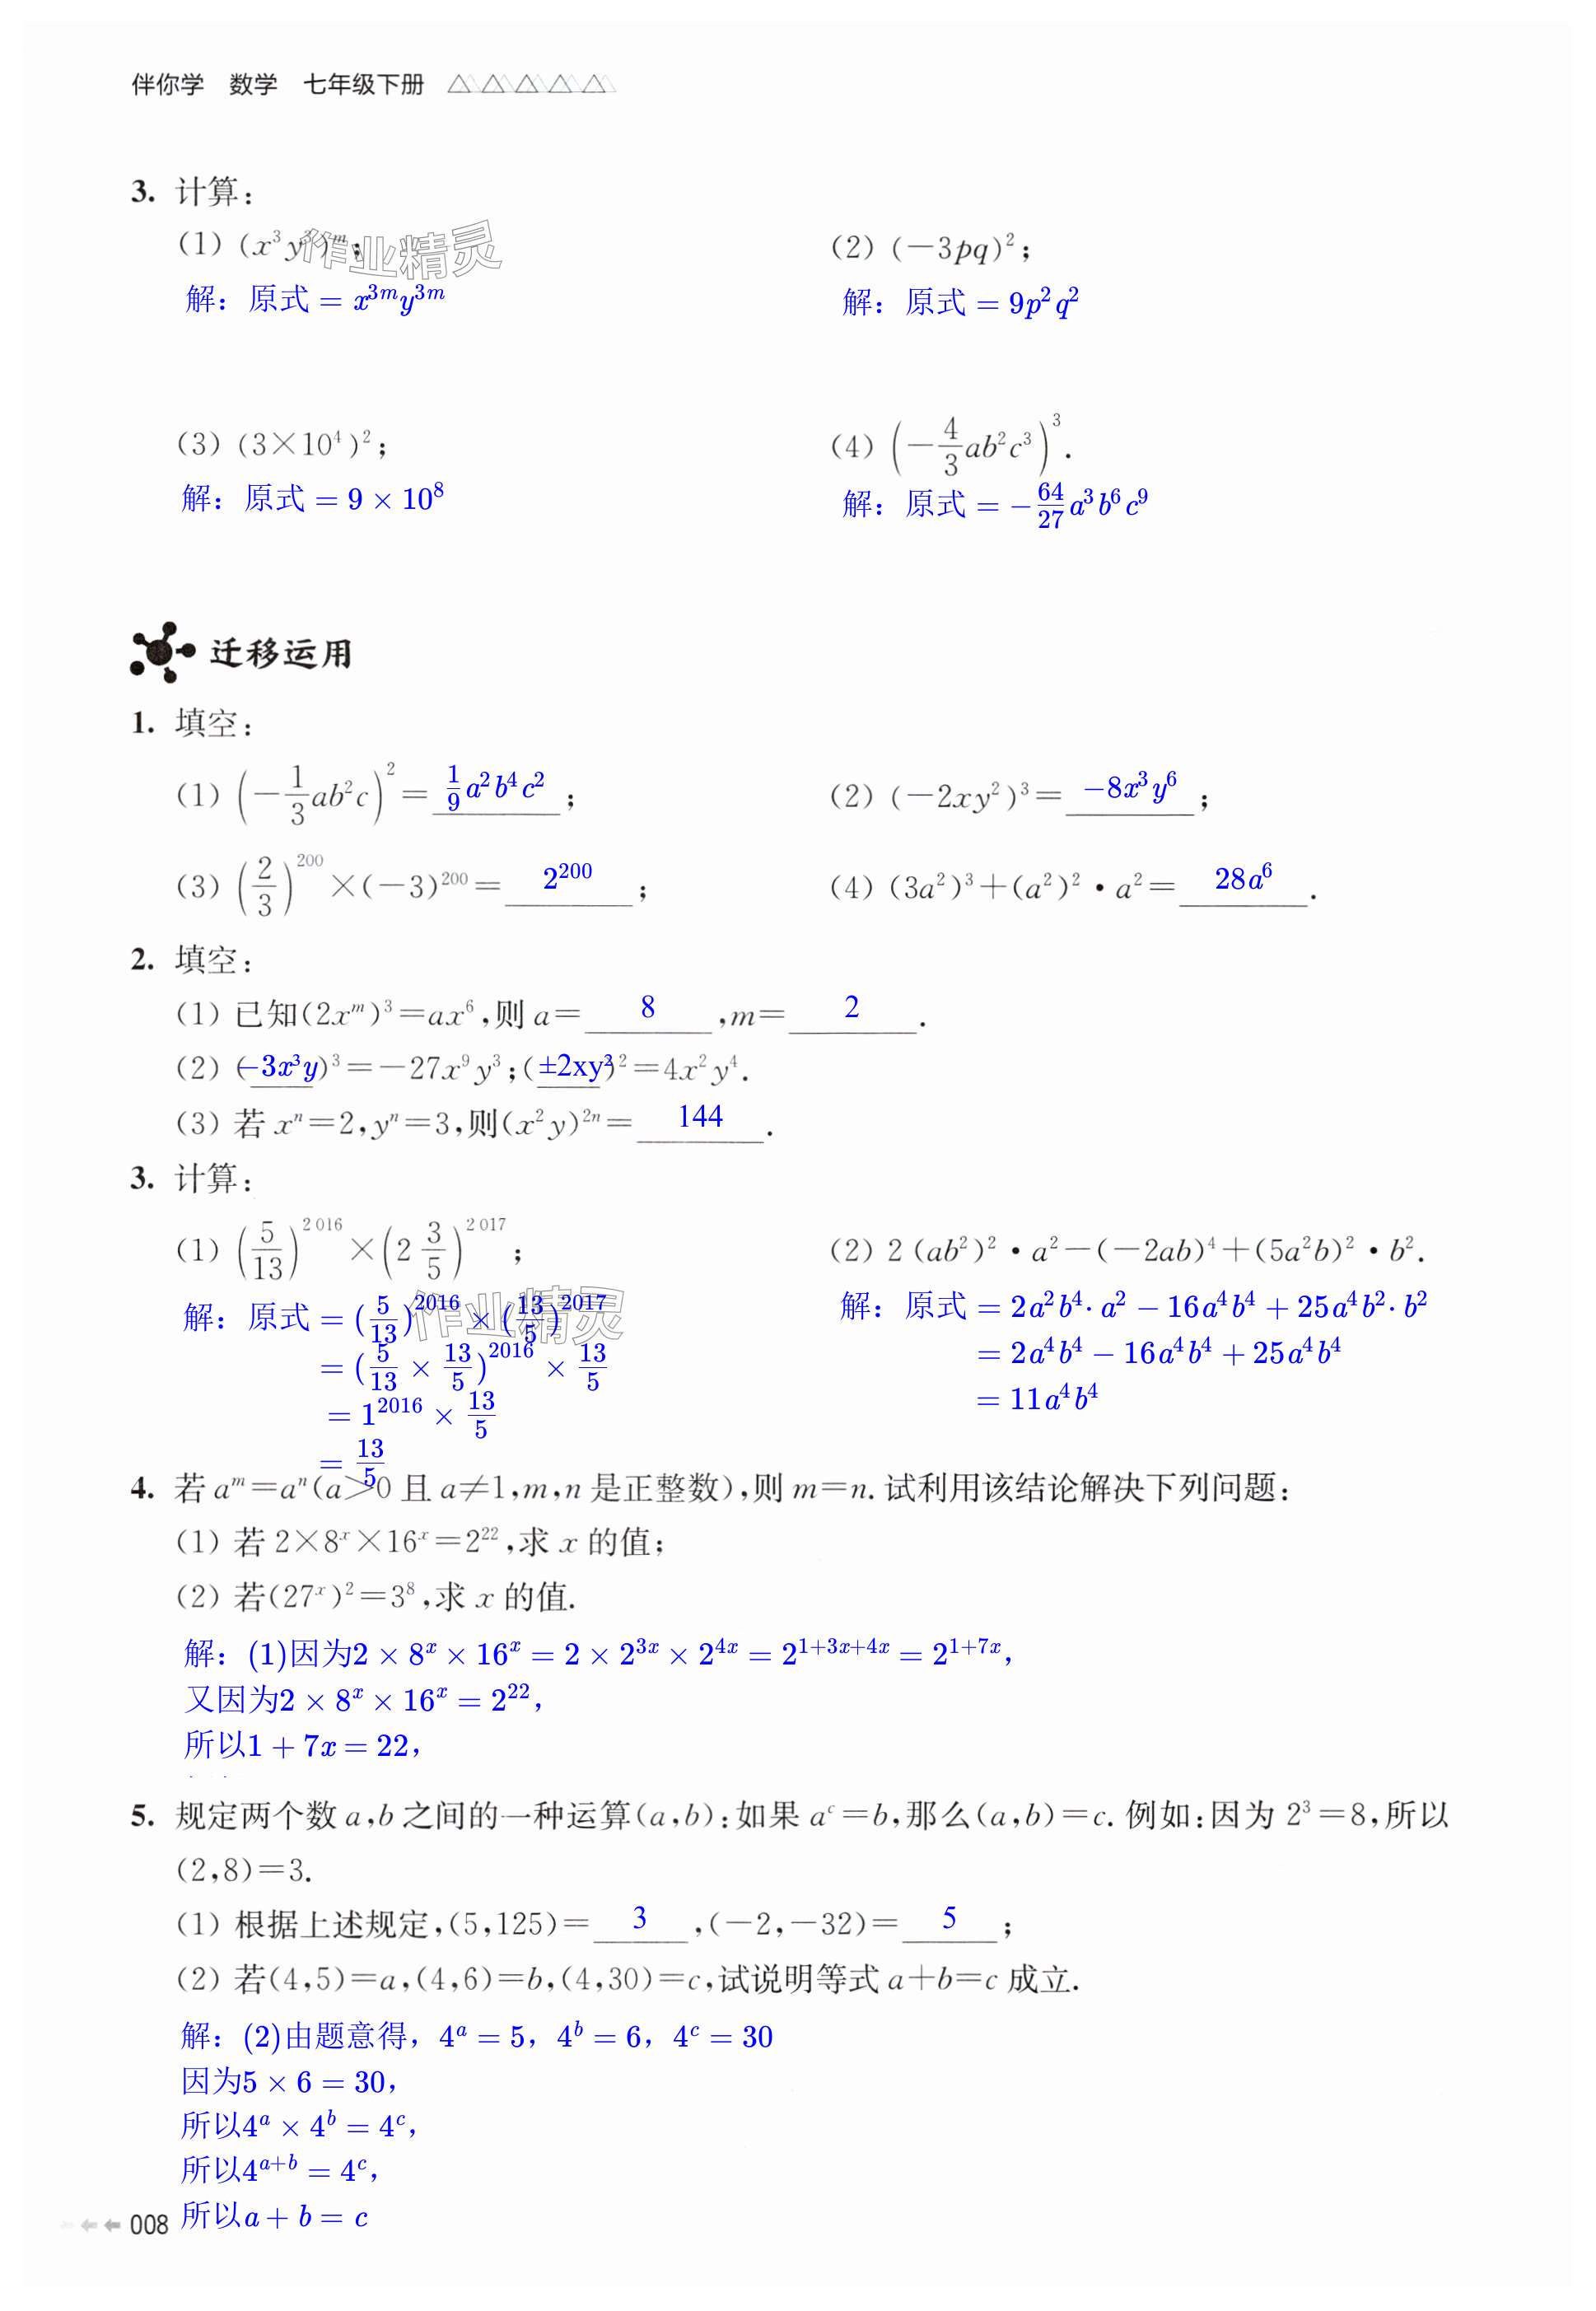 伴你学 数学 七年级下册
3. 计算:
(1) (x³y³)ᵐ; (2) (-3pq)²;
解：原式 = x³ᵐy³ᵐ 解：原式 = 9p²q²
(3) (3×10⁴)²; (4) (-4/3 ab²c³)³.
解：原式 = 9 × 10⁸ 解：原式 = -64/27 a³b⁶c⁹
迁移运用
1. 填空:
(1) (-1/3 ab²c)² = 1/9 a²b⁴c² ; (2) (-2xy²)³ = -8x³y⁶ ;
(3) (2/3)²⁰⁰ ×(-3)²⁰⁰ = 2²⁰⁰ ; (4) (3a²)³+(a²)²·a² = 28a⁶ .
2. 填空:
(1) 已知(2xᵐ)³=ax⁶,则 a= 8 ,m= 2 .
(2) (-3x³y)³=-27x⁹y³;(±2xy²)²=4x²y⁴.
(3) 若 xⁿ=2,yⁿ=3,则(x²y)²ⁿ= 144 .
3. 计算:
(1) (5/13)²⁰¹⁶×(2 3/5)²⁰¹⁷; (2) 2(ab²)²·a²-(-2ab)⁴+(5a²b)²·b².
解：原式 = (5/13)²⁰¹⁶ × (13/5)²⁰¹⁷ 解：原式 = 2a²b⁴·a² - 16a⁴b⁴ + 25a⁴b²·b²
= (5/13 × 13/5)²⁰¹⁶ × 13/5 = 2a⁴b⁴ - 16a⁴b⁴ + 25a⁴b⁴
= 1²⁰¹⁶ × 13/5 = 11a⁴b⁴
= 13/5
4. 若 aᵐ=aⁿ(a>0 且 a≠1,m,n 是正整数),则 m=n. 试利用该结论解决下列问题:
(1) 若 2×8ˣ×16ˣ=2²²,求 x 的值;
(2) 若(27ˣ)²=3⁸,求 x 的值.
解：(1)因为2 × 8ˣ × 16ˣ = 2 × 2³ˣ × 2⁴ˣ = 2¹⁺³ˣ⁺⁴ˣ = 2¹⁺⁷ˣ，
又因为2 × 8ˣ × 16ˣ = 2²²，
所以1 + 7x = 22，
5. 规定两个数 a,b 之间的一种运算(a,b):如果 aᶜ=b,那么(a,b)=c. 例如:因为 2³=8,所以
(2,8)=3.
(1) 根据上述规定,(5,125)= 3 ,(-2,-32)= 5 ;
(2) 若(4,5)=a,(4,6)=b,(4,30)=c,试说明等式 a+b=c 成立.
解：(2)由题意得，4ᵃ = 5，4ᵇ = 6，4ᶜ = 30
因为5 × 6 = 30，
所以4ᵃ × 4ᵇ = 4ᶜ，
所以4ᵃ⁺ᵇ = 4ᶜ，
所以a + b = c
008
作业精灵
作业精灵